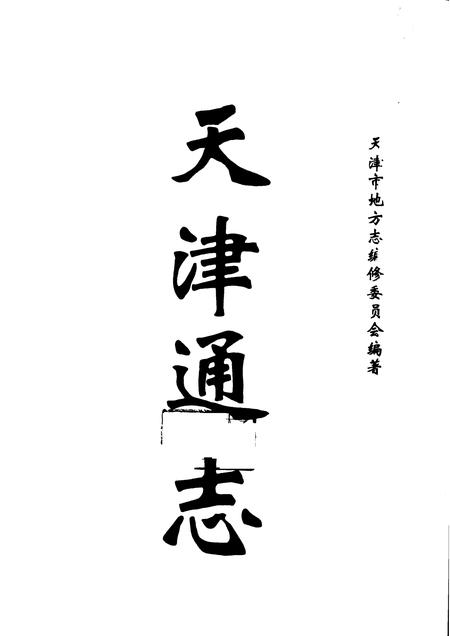 天津市地方志编修委员会编著
天津通志